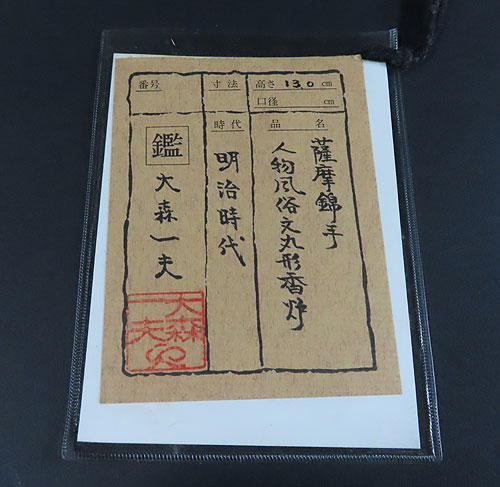 番号
寸法
高さ 13.0 cm
口径 cm
品名
薩摩錦手
人物風俗文丸形香炉
時代
明治時代
鑑
大森一夫
大森
一夫